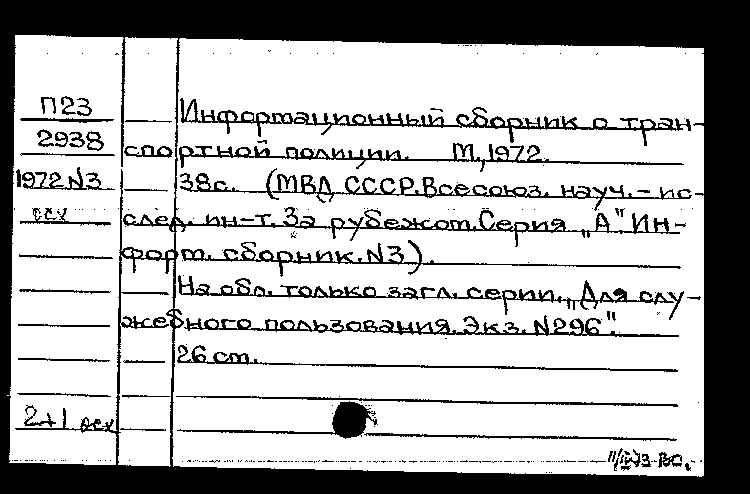 П23
2938
1972 N3
осх
Информационный сборник о тран-
спортной полиции. М., 1972.
38с. (МВД СССР. Всесоюз. науч.-ис-
след. ин-т. За рубежом. Серия „А" Ин-
форм. сборник. N3).
На обл. только загл. серии. „Для слу-
жебного пользования. Экз. N296".
26 см.
2+1 осх